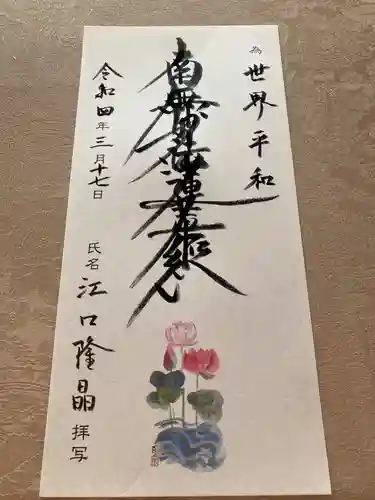 為 世界平和
南無妙法蓮華経
令和四年三月十七日 氏名 江口隆晶 拝写